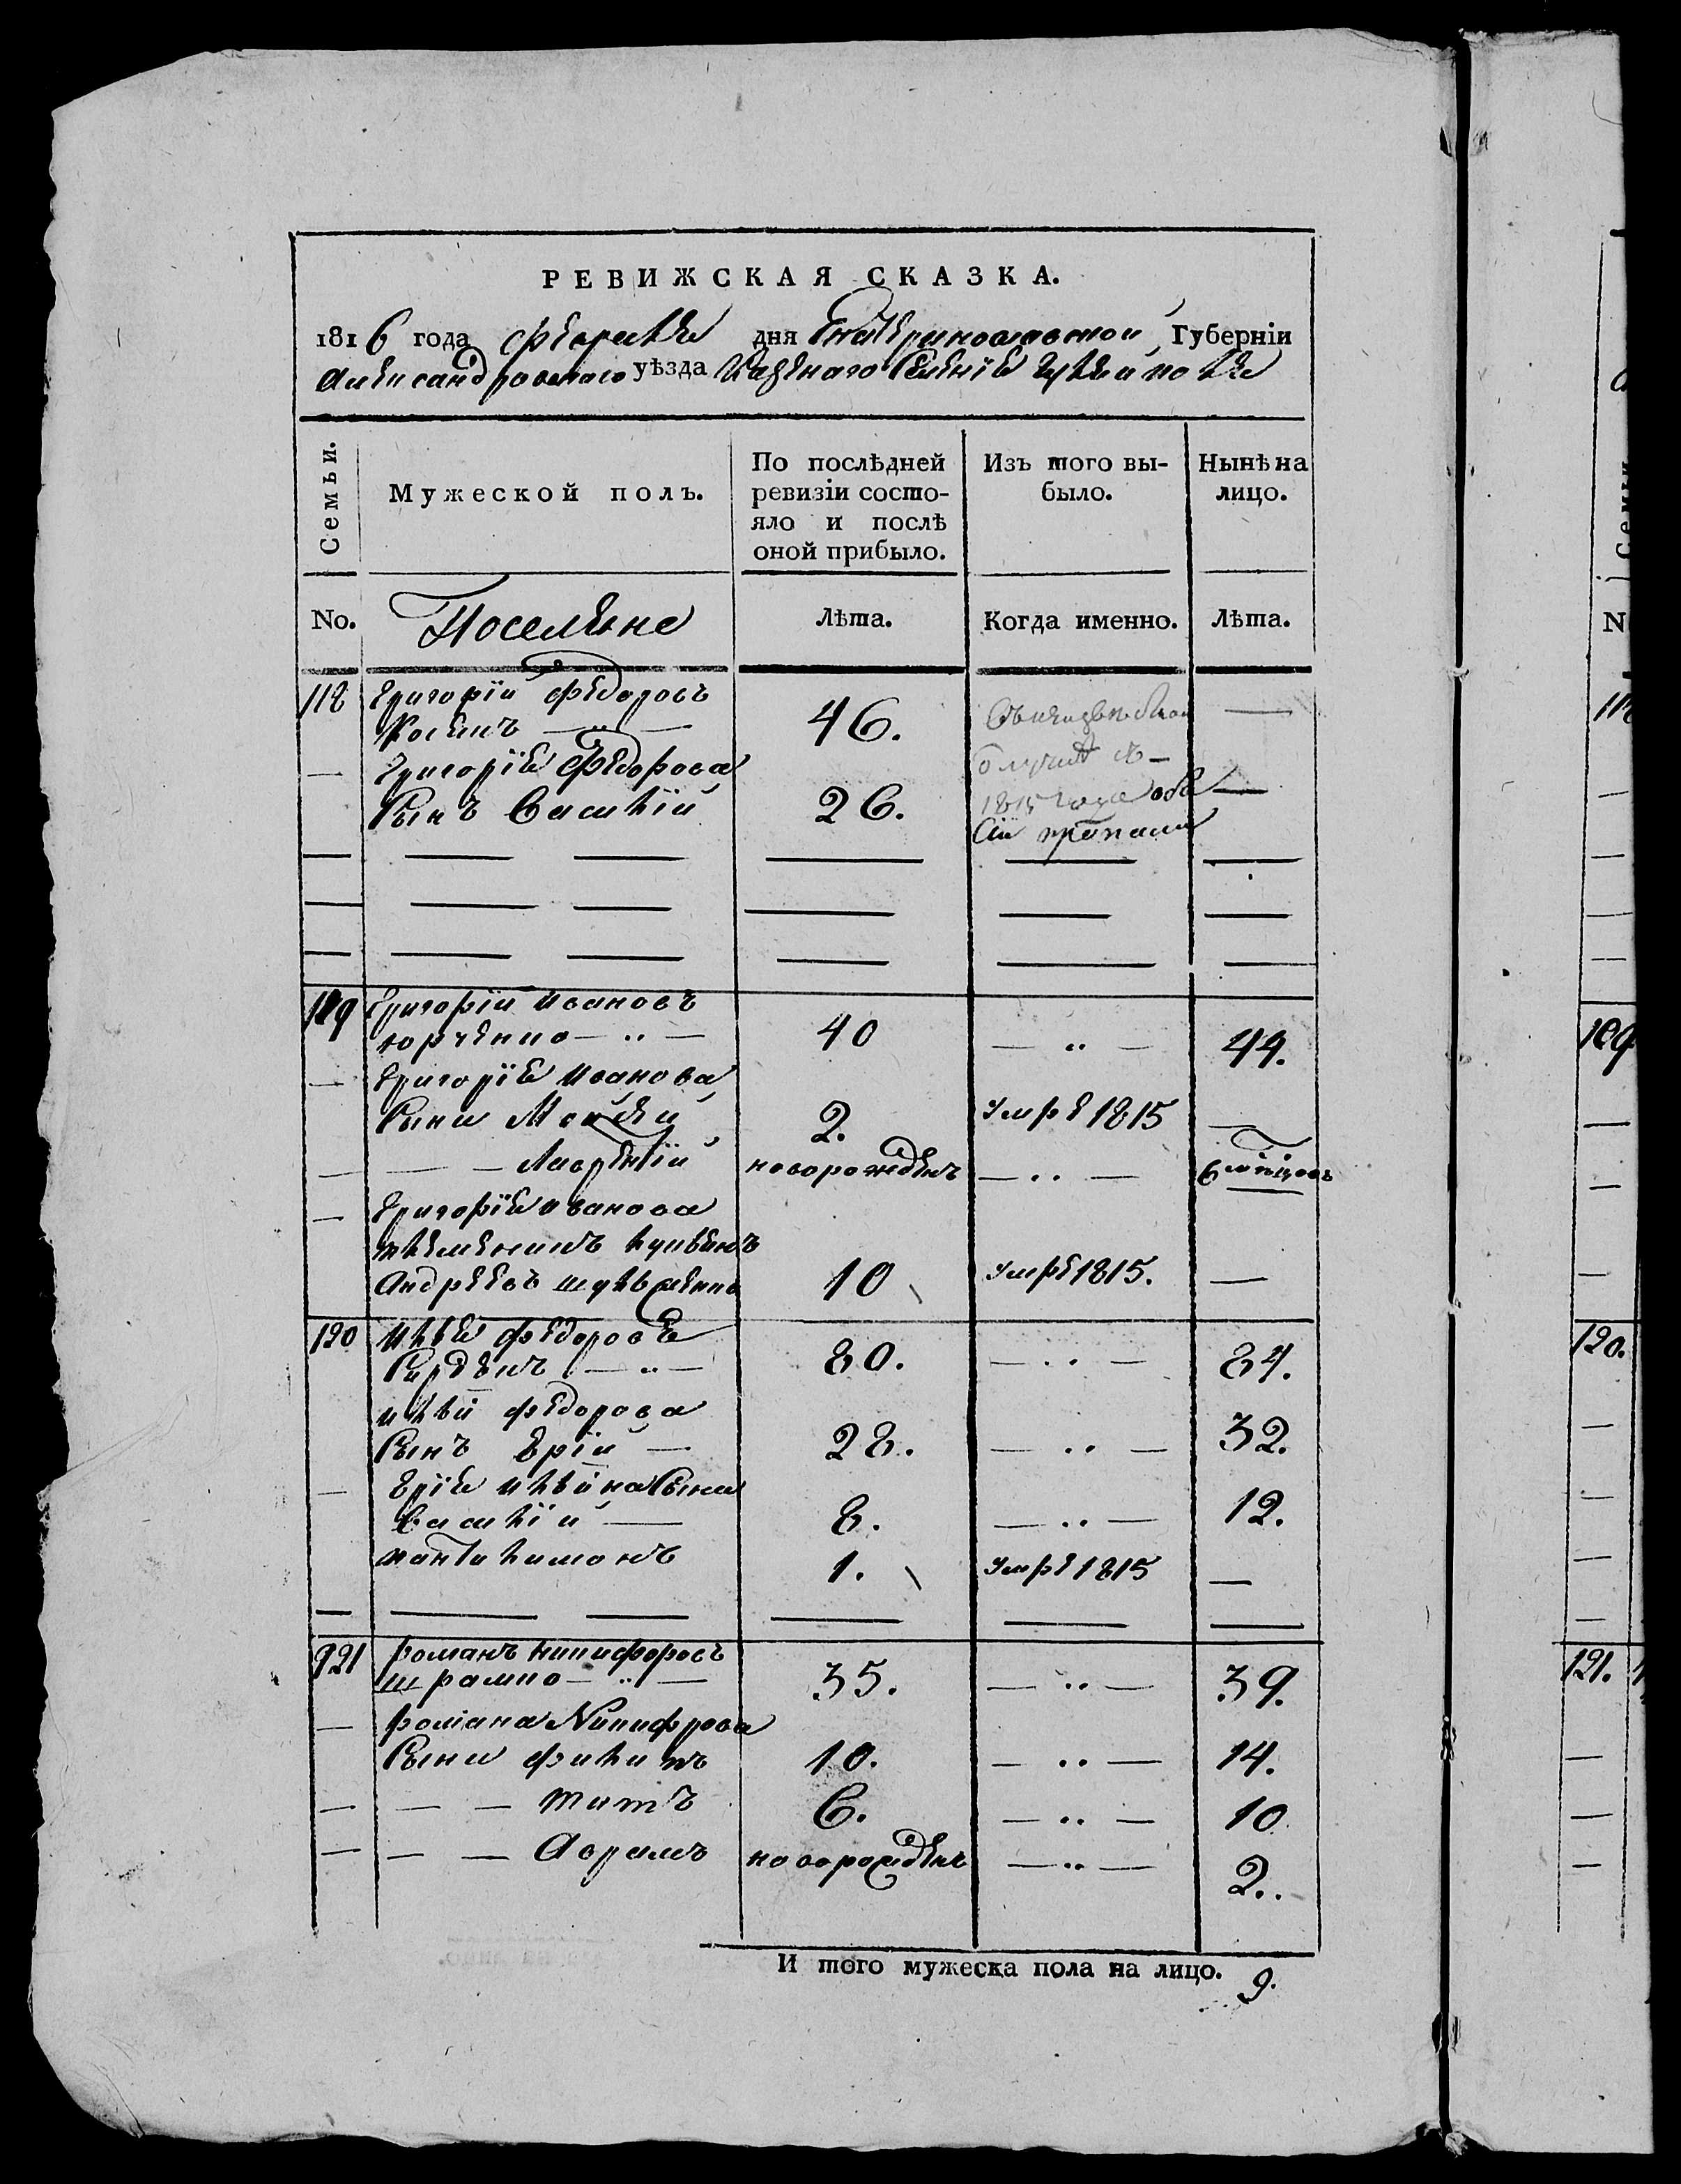 РЕВИЖСКАЯ СКАЗКА.
1816 года февраля дня Екатеринославской Губерніи
Александровского уѣзда Казенаго Селенія
Семьи.
Мужеской полъ.
По послѣдней ревизіи состояло и послѣ оной прибыло.
Изъ того выбыло.
Нынѣ на лицо.
No.
Поселяне
Лѣта.
Когда именно.
Лѣта.
118 Григорій Федоровъ
46. —
— Григорія Федорова
Сынъ Василій 26. 1815 года оба —
сіи пропали
119 Григорій Ивановъ
юрченко — " — 40 — " — 44.
— Григорія Иванова
Сыни Мойсей 2. Умре 1815 —
— — — Лаврентій новорожденъ — " — 6 мѣсцовъ
— Григорія Иванова
племенникъ
Андреевъ 10 Умре 1815. —
120 Илья Федоровъ
— " — 80. — " — 84.
Ильи Федорова
Сынъ Юрій — 28. — " — 32.
— Юрія Ильина Сыни
Василій — 8. — " — 12.
Пантилимонъ 1. Умре 1815 —
121 Романъ Никифоровъ
шрамко — " — 35. — " — 39.
— Романа Никифрова
Сыни Филипъ 10. — " — 14.
— — — Титъ 6. — " — 10
— — — Аврамъ новорожденъ — " — 2.
И того мужеска пола на лицо. 9.
No
119
120.
121.